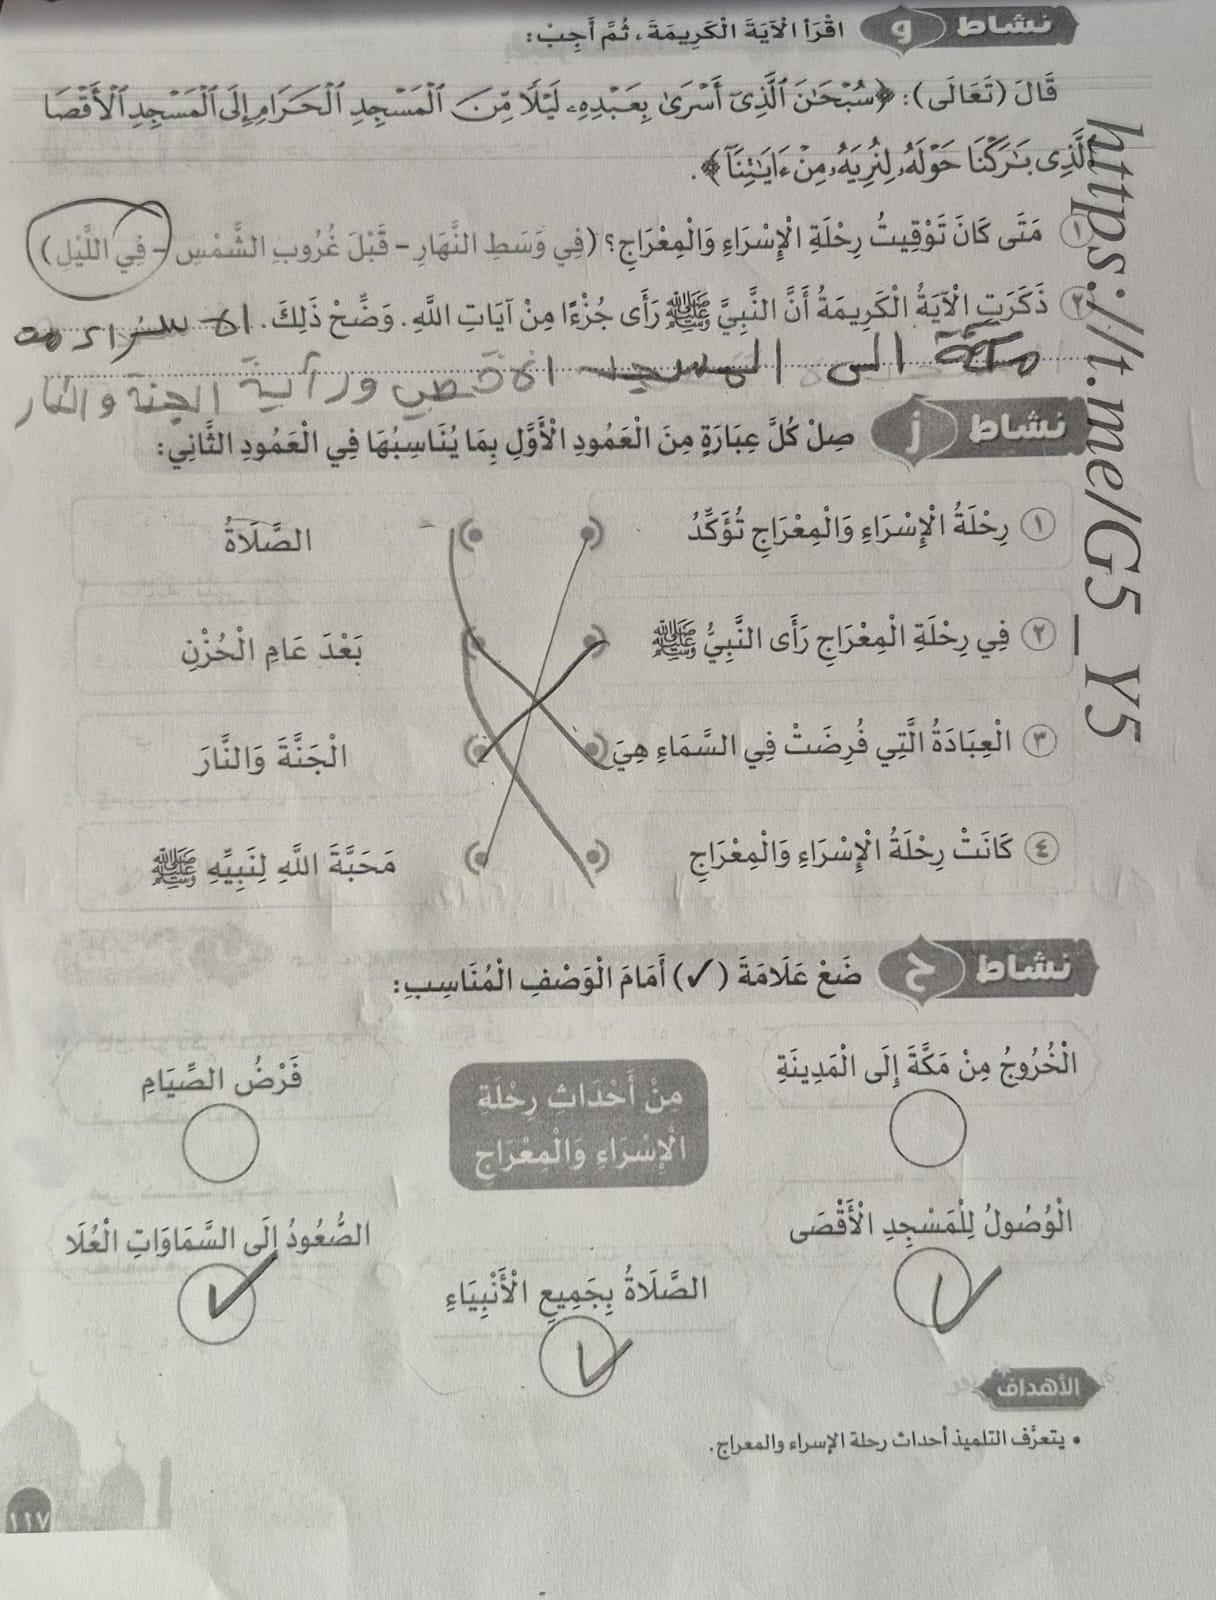 نشاط و اقْرَأِ الْآيَةَ الْكَرِيمَةَ، ثُمَّ أَجِبْ:
قَالَ (تَعَالَى): ﴿سُبْحَٰنَ ٱلَّذِىٓ أَسْرَىٰ بِعَبْدِهِۦ لَيْلًا مِّنَ ٱلْمَسْجِدِ ٱلْحَرَامِ إِلَى ٱلْمَسْجِدِ ٱلْأَقْصَا
ٱلَّذِى بَٰرَكْنَا حَوْلَهُۥ لِنُرِيَهُۥ مِنْ ءَايَٰتِنَآ﴾.
① مَتَى كَانَ تَوْقِيتُ رِحْلَةِ الْإِسْرَاءِ وَالْمِعْرَاجِ؟ (فِي وَسَطِ النَّهَارِ - قَبْلَ غُرُوبِ الشَّمْسِ - فِي اللَّيْلِ)
② ذَكَرَتِ الْآيَةُ الْكَرِيمَةُ أَنَّ النَّبِيَّ ﷺ رَأَى جُزْءًا مِنْ آيَاتِ اللَّهِ. وَضِّحْ ذَلِكَ. الاسراء من
مكة الى المسجد الاقصي ورآية الجنة والنار
نشاط ز صِلْ كُلَّ عِبَارَةٍ مِنَ الْعَمُودِ الْأَوَّلِ بِمَا يُنَاسِبُهَا فِي الْعَمُودِ الثَّانِي:
① رِحْلَةُ الْإِسْرَاءِ وَالْمِعْرَاجِ تُؤَكِّدُ الصَّلَاةُ
② فِي رِحْلَةِ الْمِعْرَاجِ رَأَى النَّبِيُّ ﷺ بَعْدَ عَامِ الْحُزْنِ
③ الْعِبَادَةُ الَّتِي فُرِضَتْ فِي السَّمَاءِ هِيَ الْجَنَّةَ وَالنَّارَ
④ كَانَتْ رِحْلَةُ الْإِسْرَاءِ وَالْمِعْرَاجِ مَحَبَّةَ اللَّهِ لِنَبِيِّهِ ﷺ
نشاط ح ضَعْ عَلَامَةَ (✓) أَمَامَ الْوَصْفِ الْمُنَاسِبِ:
الْخُرُوجُ مِنْ مَكَّةَ إِلَى الْمَدِينَةِ
مِنْ أَحْدَاثِ رِحْلَةِ
الْإِسْرَاءِ وَالْمِعْرَاجِ
فَرْضُ الصِّيَامِ
الْوُصُولُ لِلْمَسْجِدِ الْأَقْصَى
الصَّلَاةُ بِجَمِيعِ الْأَنْبِيَاءِ
الصُّعُودُ إِلَى السَّمَاوَاتِ الْعُلَا
الأهداف
• يتعرَّف التلميذ أحداث رحلة الإسراء والمعراج.
١١٧
https://t.me/G5_Y5